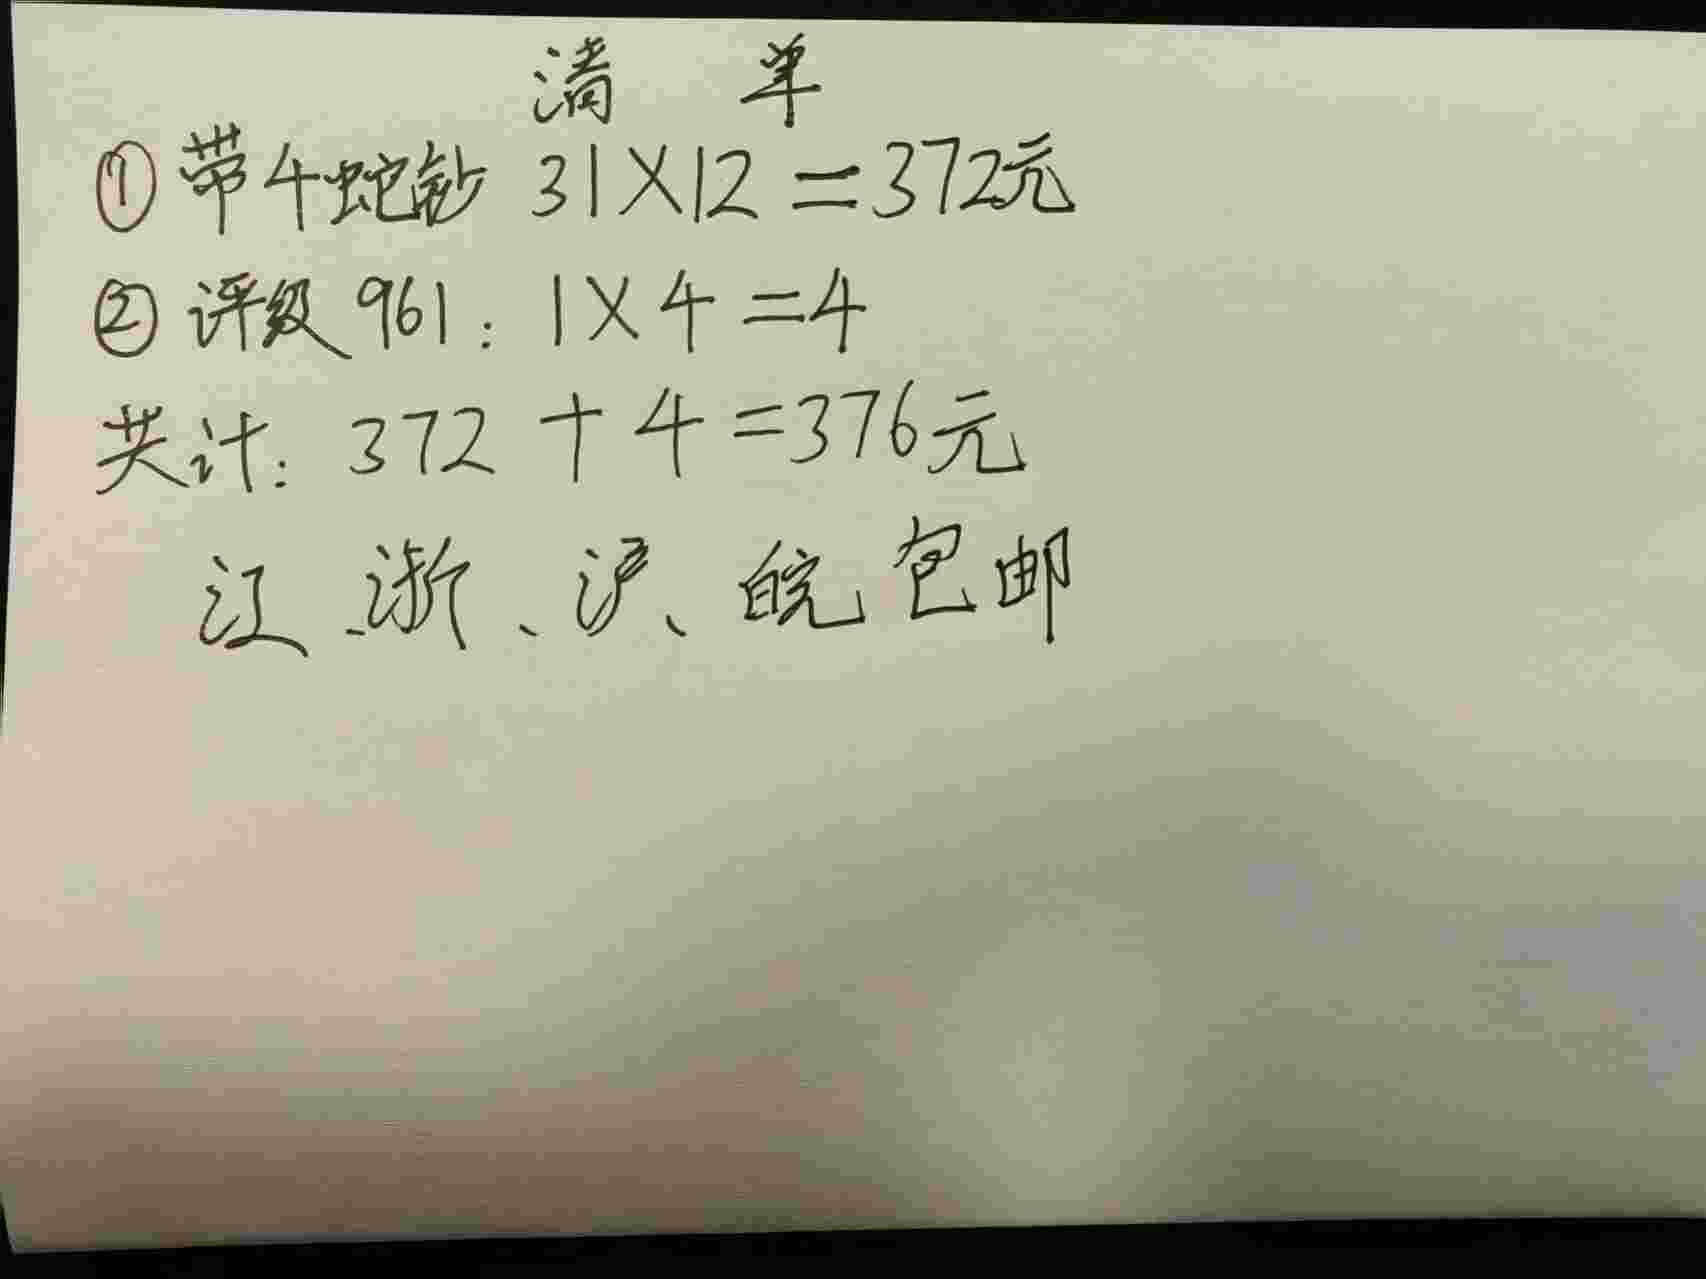 清 单
① 带4蛇钞 31×12=372元
② 评级961：1×4=4
共计：372+4=376元
江、浙、沪、皖包邮